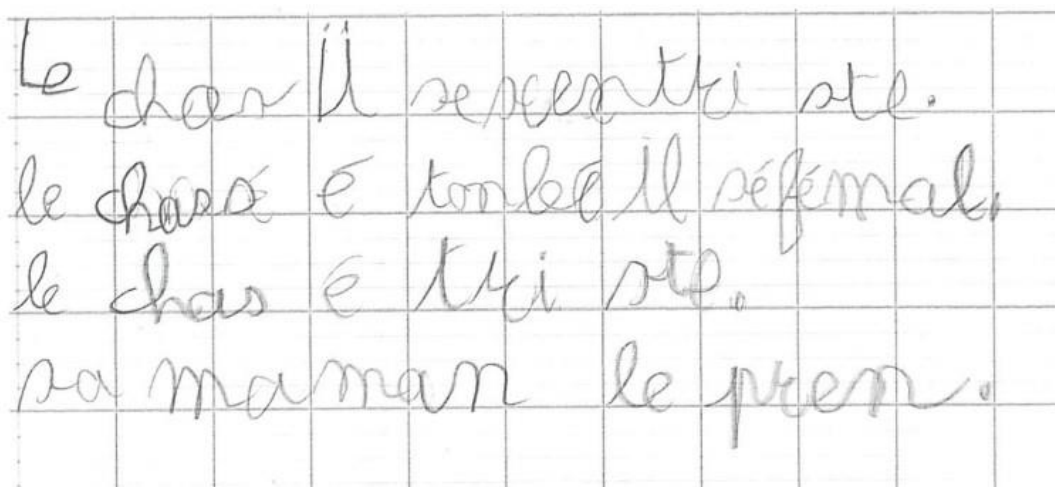 Le chas il sesentri ste.
le chasé é tonbeé il séfémal.
le chas é tri ste.
sa maman le pren.